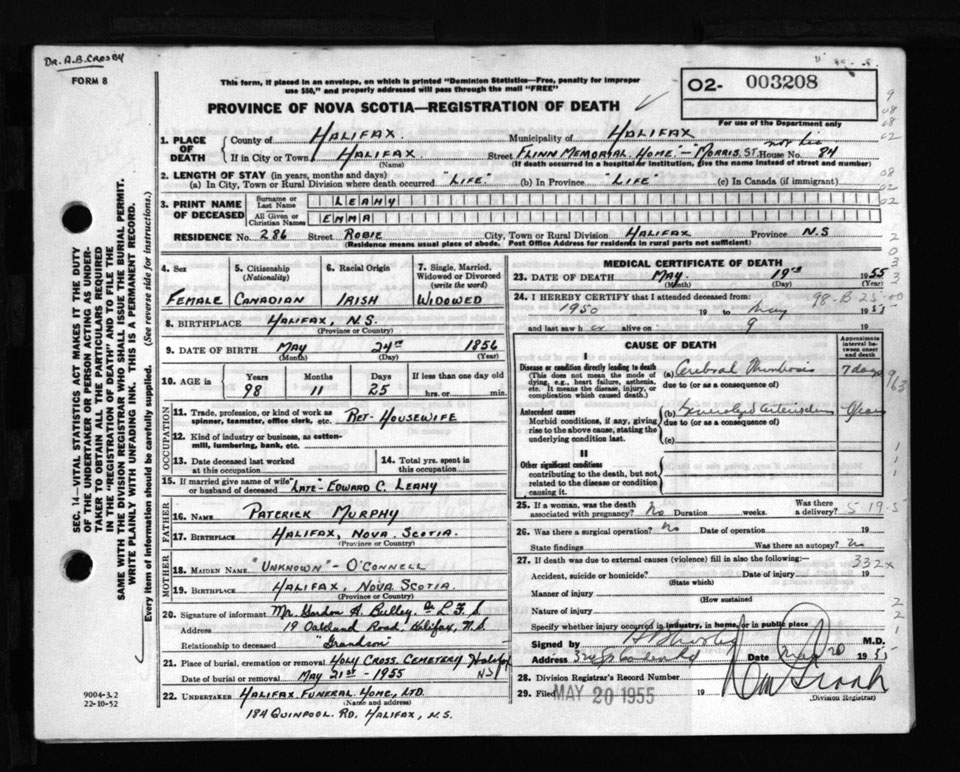 DR. A.B. CROSBY
FORM 8
This form, if placed in an envelope, on which is printed "Dominion Statistics—Free, penalty for improper
use $50," and properly addressed will pass through the mail "FREE"
PROVINCE OF NOVA SCOTIA—REGISTRATION OF DEATH
02- 003208
For use of the Department only
SEC. 14—VITAL STATISTICS ACT MAKES IT THE DUTY
OF THE UNDERTAKER OR PERSON ACTING AS UNDER-
TAKER TO OBTAIN ALL THE PARTICULARS REQUIRED
IN THE "REGISTRATION OF DEATH" AND TO FILE THE
SAME WITH THE DIVISION REGISTRAR WHO SHALL ISSUE THE BURIAL PERMIT.
WRITE PLAINLY WITH UNFADING INK. THIS IS A PERMANENT RECORD.
Every item of information should be carefully supplied. (See reverse side for instructions.)
1. PLACE OF DEATH
County of HALIFAX. Municipality of HALIFAX
If in City or Town HALIFAX. Street FLINN MEMORIAL HOME.—"MORRIS. ST. House No. 84
(Name) (If death occurred in a hospital or institution, give the name instead of street and number)
2. LENGTH OF STAY (in years, months and days)
(a) In City, Town or Rural Division where death occurred "LIFE." (b) In Province "LIFE" (c) In Canada (if immigrant)
3. PRINT NAME OF DECEASED
Surname or Last Name LEAHY
All Given or Christian Names EMMA
RESIDENCE No. 286 Street ROBIE City, Town or Rural Division HALIFAX Province N.S
(Residence means usual place of abode. Post Office Address for residents in rural parts not sufficient)
4. Sex 5. Citizenship (Nationality) 6. Racial Origin 7. Single, Married, Widowed or Divorced (write the word)
FEMALE CANADIAN IRISH WIDOWED
8. BIRTHPLACE HALIFAX, N.S.
(Province or Country)
9. DATE OF BIRTH MAY 24TH 1856
(Month) (Day) (Year)
10. AGE IS Years Months Days If less than one day old
98 11 25 hrs. or min.
OCCUPATION
11. Trade, profession, or kind of work as
spinner, teamster, office clerk, etc. RET-HOUSEWIFE
12. Kind of industry or business, as cotton-
mill, lumbering, bank, etc.
13. Date deceased last worked
at this occupation
14. Total yrs. spent in
this occupation
15. If married give name of wife
or husband of deceased "LATE"-EDWARD C. LEAHY
FATHER
16. NAME PATERICK MURPHY
17. BIRTHPLACE HALIFAX, NOVA SCOTIA.
(Province or Country)
MOTHER
18. MAIDEN NAME "UNKNOWN"-O'CONNELL
19. BIRTHPLACE HALIFAX, NOVA SCOTIA.
(Province or Country)
20. Signature of informant Mr. Gordon A.
Address 19 Oakland Road, Halifax, N.S.
Relationship to deceased "Grandson"
21. Place of burial, cremation or removal HOLY CROSS. CEMETERY Halifax
Date of burial or removal MAY 21ST-1955 NS
22. UNDERTAKER HALIFAX FUNERAL HOME, LTD.
(Name and address)
184 QUINPOOL. RD. HALIFAX, N.S.
9004-3.2
22-10-52
MEDICAL CERTIFICATE OF DEATH
23. DATE OF DEATH MAY. 19TH 1955
(Month) (Day) (Year)
24. I HEREBY CERTIFY that I attended deceased from: 98-B-25-00
1950 19 to May 1955
and last saw h er alive on 9 19
CAUSE OF DEATH
Approximate interval between onset and death
I
Disease or condition directly leading to death
(This does not mean the mode of
dying, e.g., heart failure, asthenia,
etc. It means the disease, injury, or
complication which caused death.)
(a) Cerebral Thrombosis 7 days
due to (or as a consequence of)
Antecedent causes
Morbid conditions, if any, giving
rise to the above cause, stating the
underlying condition last.
(b) Generalized Years
due to (or as a consequence of)
(c)
II
Other significant conditions
contributing to the death, but not
related to the disease or condition
causing it.
25. If a woman, was the death
associated with pregnancy? No Duration weeks. Was there a delivery? 5 19.5
26. Was there a surgical operation? No Date of operation 19
State findings Was there an autopsy? No
27. If death was due to external causes (violence) fill in also the following:- 332x
Accident, suicide or homicide? Date of injury 19
(State which)
Manner of injury
(How sustained
Nature of injury
Specify whether injury occurred in industry, in home, or in public place
Signed by M.D.
Address Date May 20 1955
28. Division Registrar's Record Number
29. Filed MAY 20 1955 19
(Division Registrar)